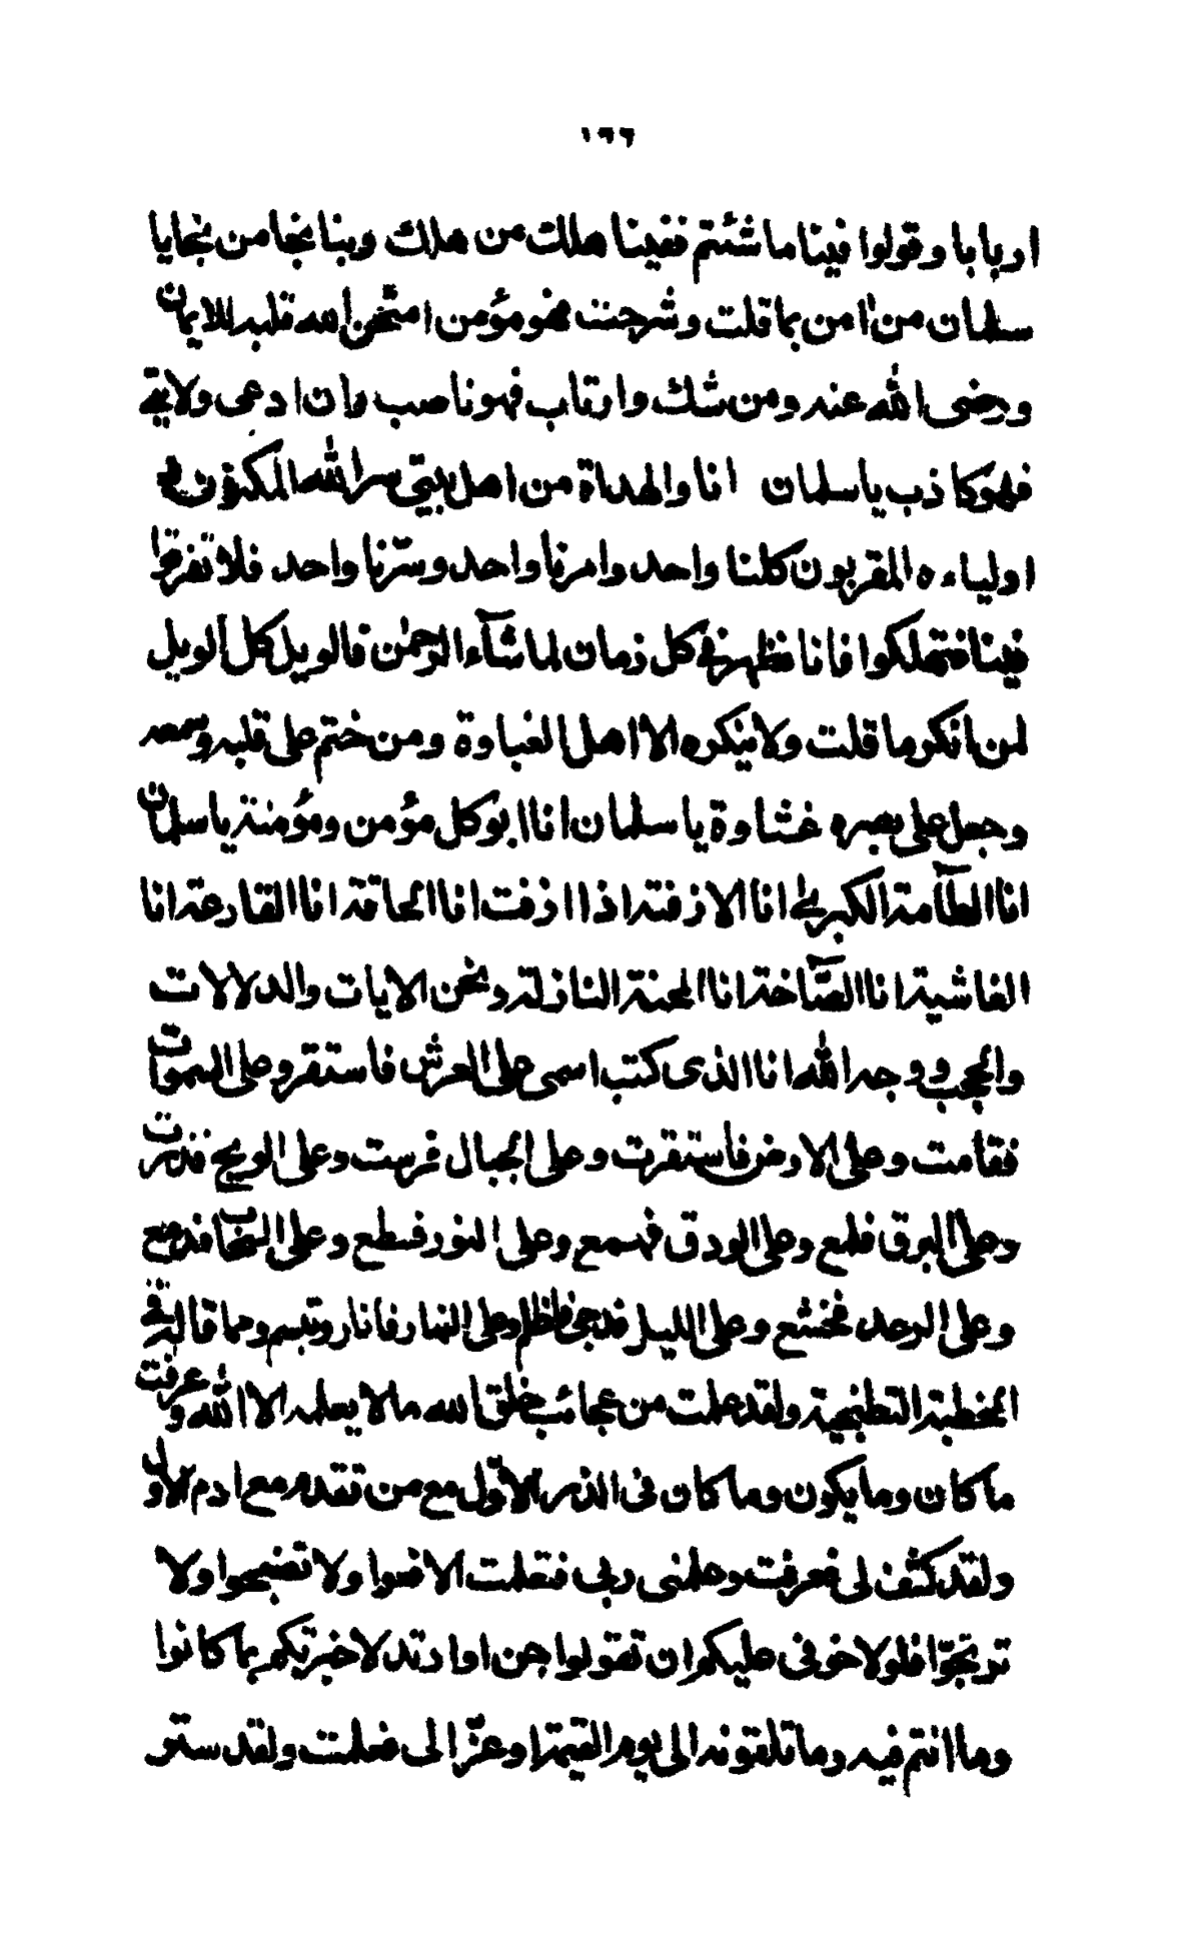 ١٦٦
اربابا وقولوا فينا ما شئتم ففينا هلك من هلك وبنا نجا من نجا يا
سلمان من اٰمن بما قلت وشرحت فهو مؤمن امتحن الله قلبه للايمان
ورضى الله عنه ومن شك وارتاب فهو ناصب وان ادعى ولايتى
فهو كاذب يا سلمان انا والهداة من اهل بيتى سر الله المكنون و
اولياءه المقربون كلنا واحد وامرنا واحد وسرّنا واحد فلا تفرقوا
فينا فتهلكوا فانا نظهر فى كل زمان لما شآء الرحمٰن فالويل كل الويل
لمن انكر ما قلت ولا ينكره الا اهل الغباوة ومن ختم على قلبه وسمعه
وجعل على بصره غشاوة يا سلمان انا ابو كل مؤمن ومؤمنة يا سلمان
انا الطآمة الكبرىٰ انا الازفة اذا ازفت انا الحاقة انا القارعة انا
الغاشية انا الصّآخة انا المحنة النازلة ونحن الايات والدلالات
والحجب ووجه الله انا الذى كتب اسمى على العرش فاستقر وعلى السموات
فقامت وعلى الارض فاستقرت وعلى الجبال فرست وعلى الريح فذرت
وعلى البرق فلمع وعلى الودق فهمع وعلى النور فسطع وعلى السّحاب فدمع
وعلى الرعد فخشع وعلى الليل فدجى واظلم وعلى النهار فانار وتبسم ومما قاله فى
الخطبة التطنجية ولقد علمت من عجائب خلق الله ما لا يعلمه الا الله وعرفت
ما كان وما يكون وما كان فى الذر الاوّل مع من تقدم مع ادم الاول
ولقد كشف لى فعرفت وعلمنى ربى فتعلمت الا فعوا ولا تضجوا ولا
ترتجّوا فلولا خوفى عليكم ان تقولوا جن او ارتد لاخبرتكم بما كانوا
وما انتم فيه وما تلقونه الى يوم القيمة اوعزّ الى فعلمت ولقد ستر